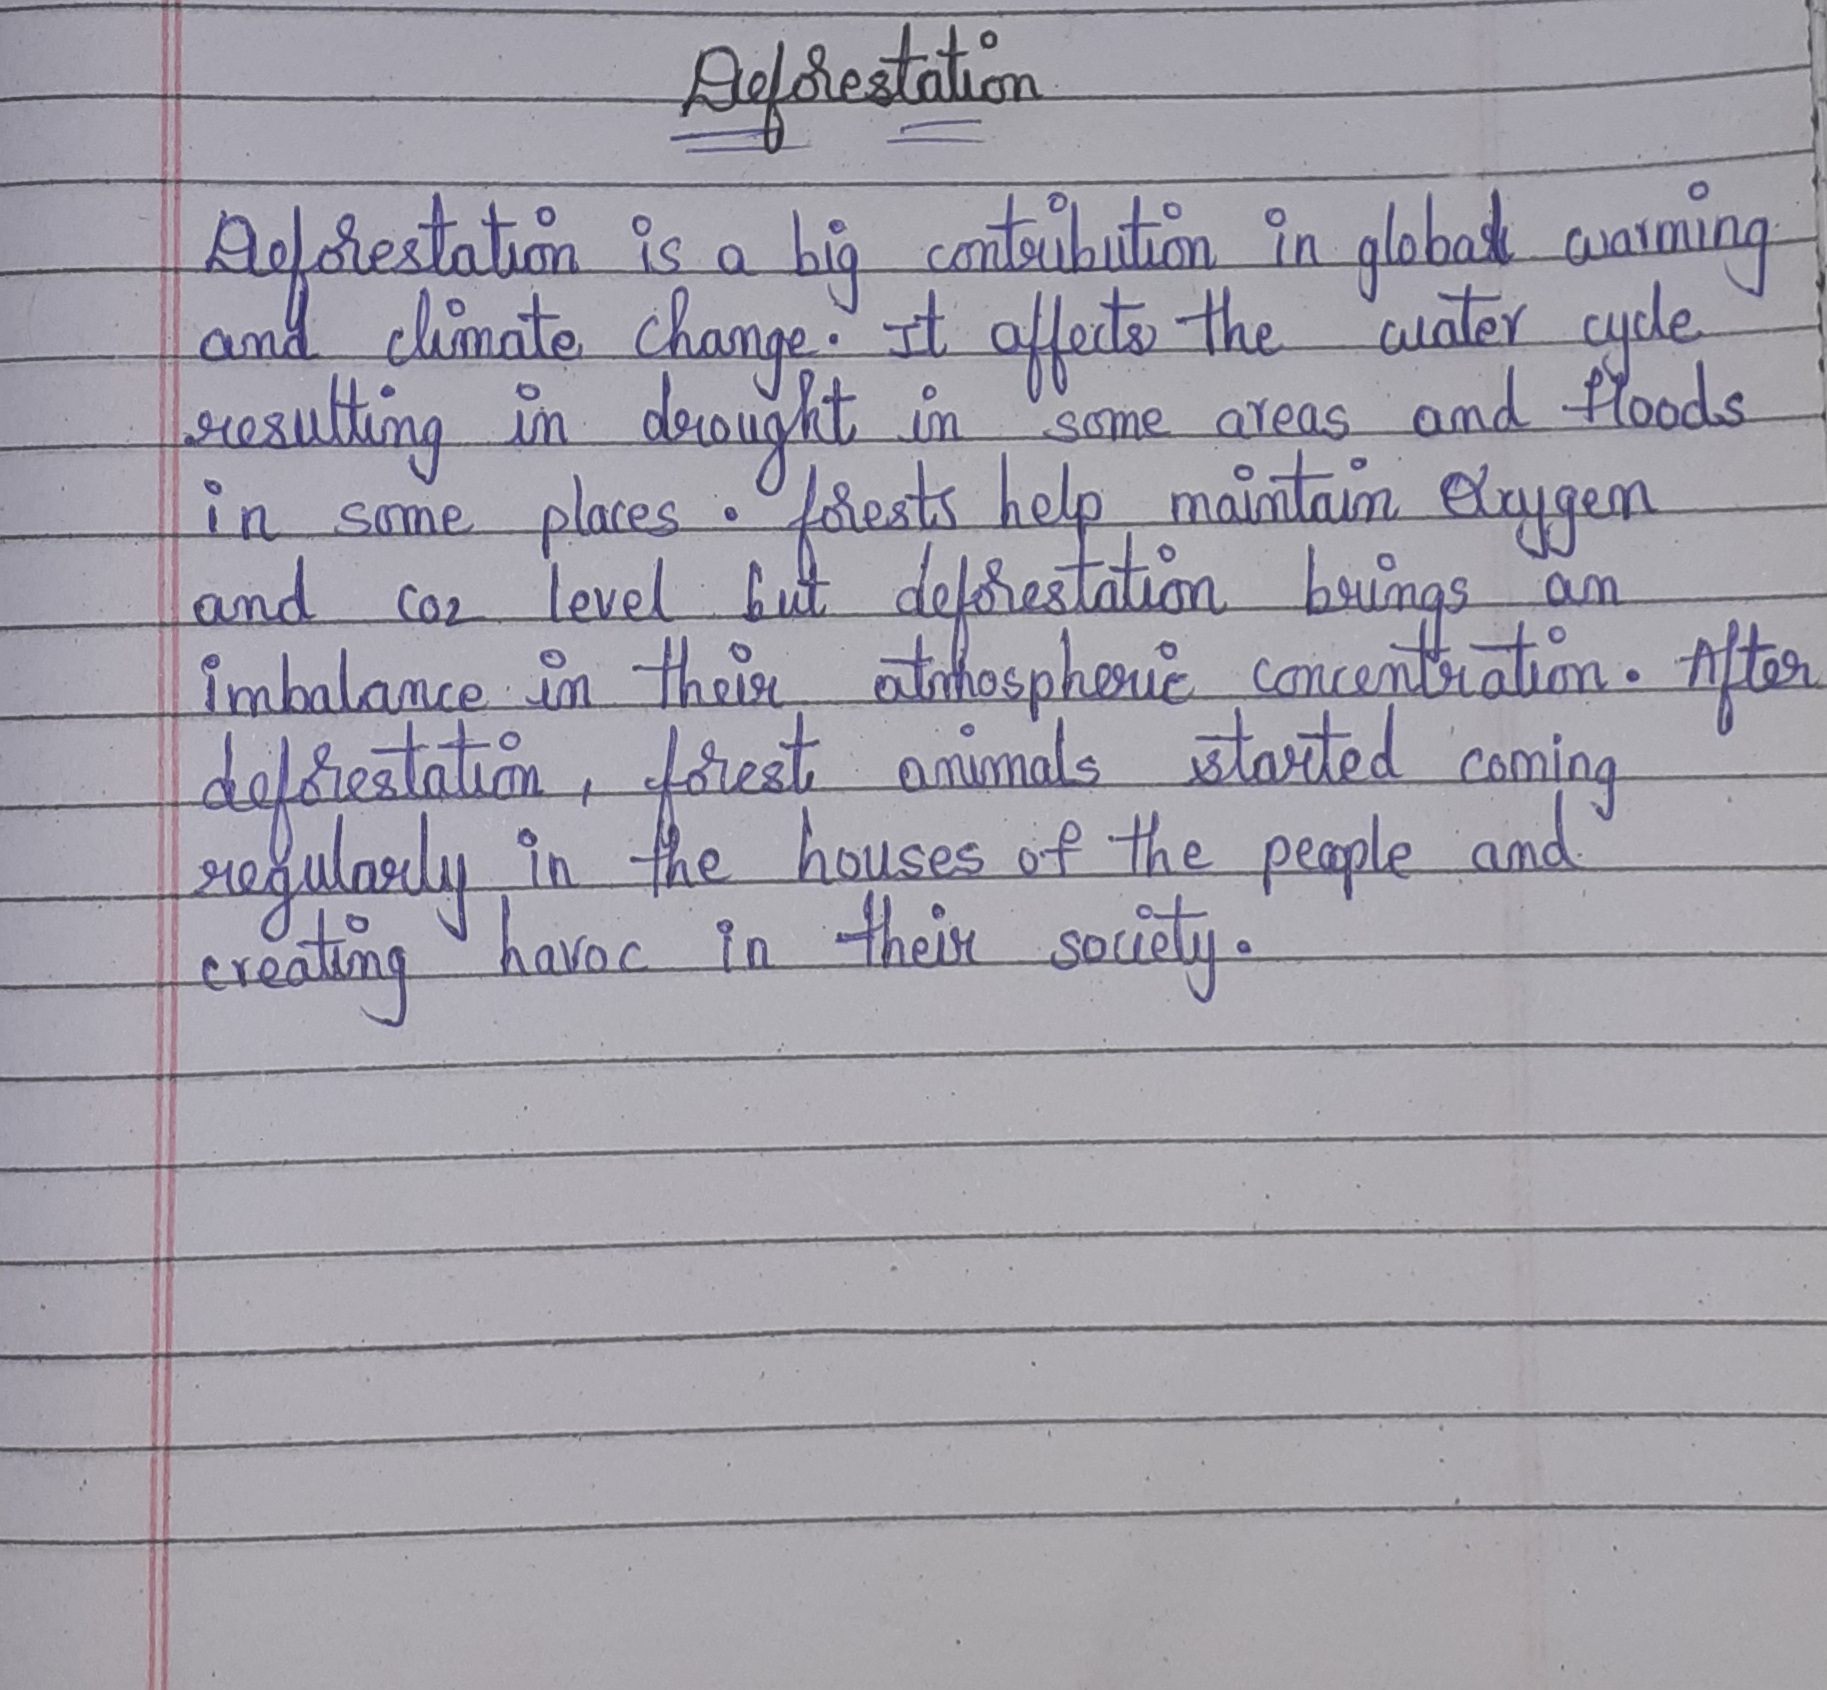 Deforestation
Deforestation is a big contribution in global warming
and climate change. It affects the water cycle
resulting in drought in some areas and floods
in some places. forests help maintain Oxygen
and co2 level but deforestation brings an
imbalance in their atmospheric concentration. After
deforestation, forest animals started coming
regularly in the houses of the people and
creating havoc in their society.